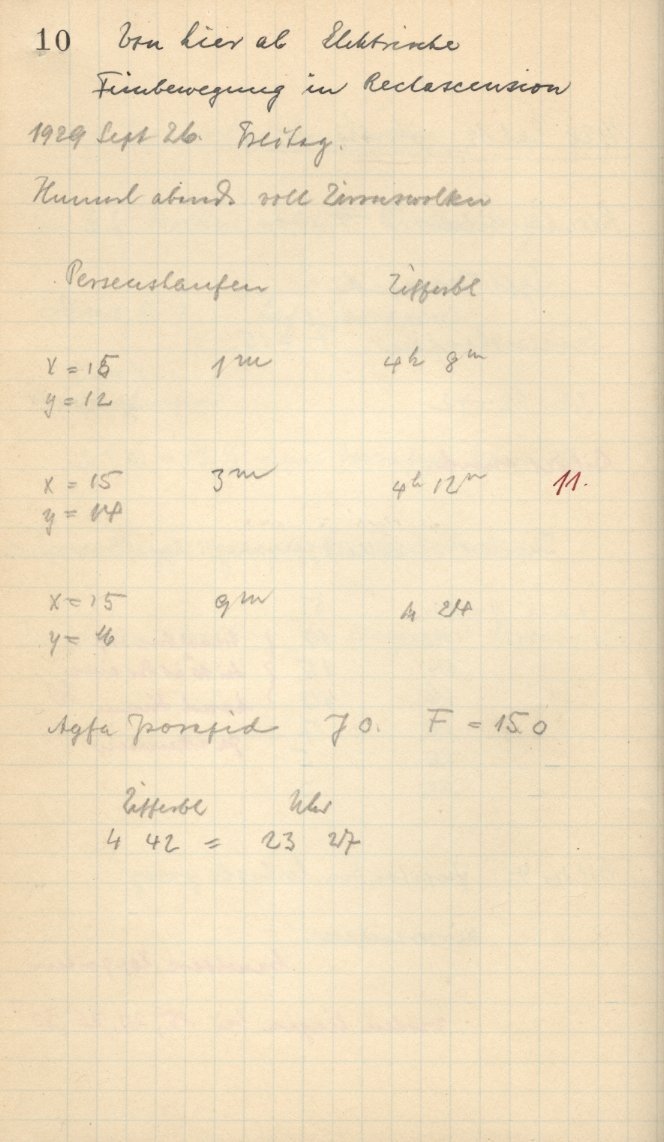 10 Von hier ab Elektrische
Feinbewegung in Rectascension
1929 Sept 26. Freitag.
Himmel abends voll Zirruswolken
Perseushaufen Zifferbl
x = 15 1m 4h 8m
y = 12
x = 15 3m 4h 12m 11.
y = 14
x = 15 9m 4 24
y = 16
Agfa J 0. F = 150
Zifferbl Uhr
4 42 = 23 27